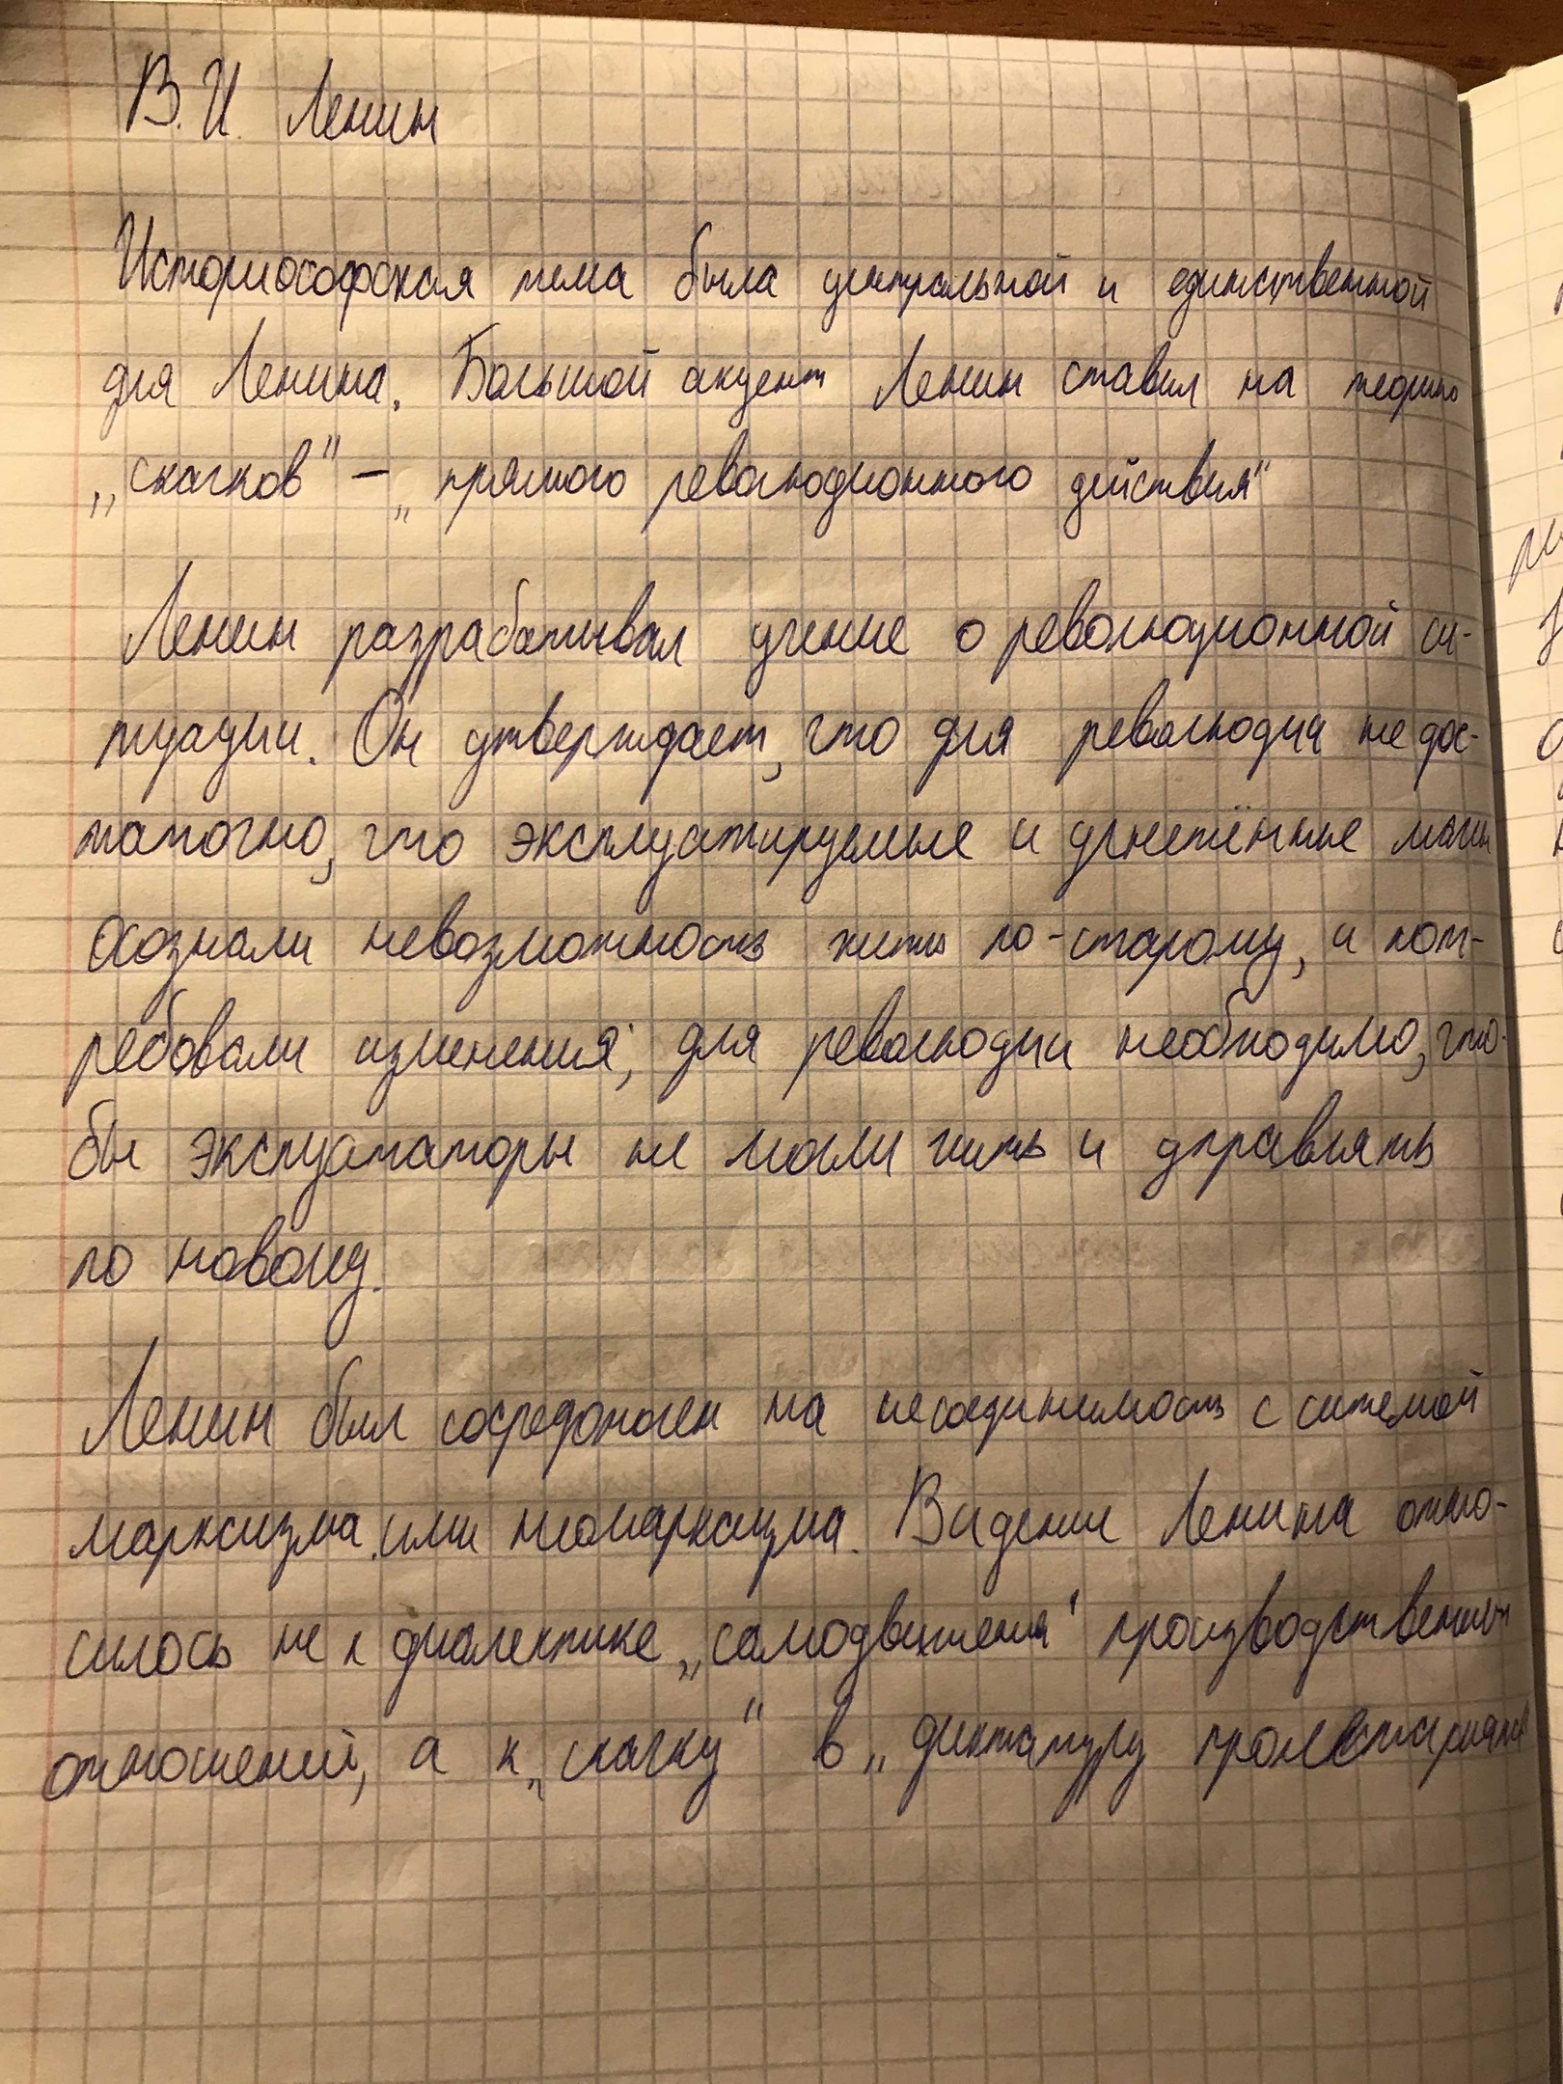 В.И. Ленин
Историософская тема была центральной и единственной
для Ленина. Большой акцент Ленин ставил на теорию
„скачков" – „прямого революционного действия"
Ленин разрабатывал учение о революционной си-
туации. Он утверждает, что для революции недос-
таточно, что эксплуатируемые и угнетённые массы
осознали невозможность жить по-старому, и пот-
ребовали изменения; для революции необходимо, что-
бы эксплуататоры не могли жить и управлять
по новому.
Ленин был сосредоточен на несоединимость с системой
марксизма или неомарксизма. Видение Ленина отно-
силось не к диалектике „самодвижения" производственных
отношений, а к „скачку" в „диктатуру пролетариата